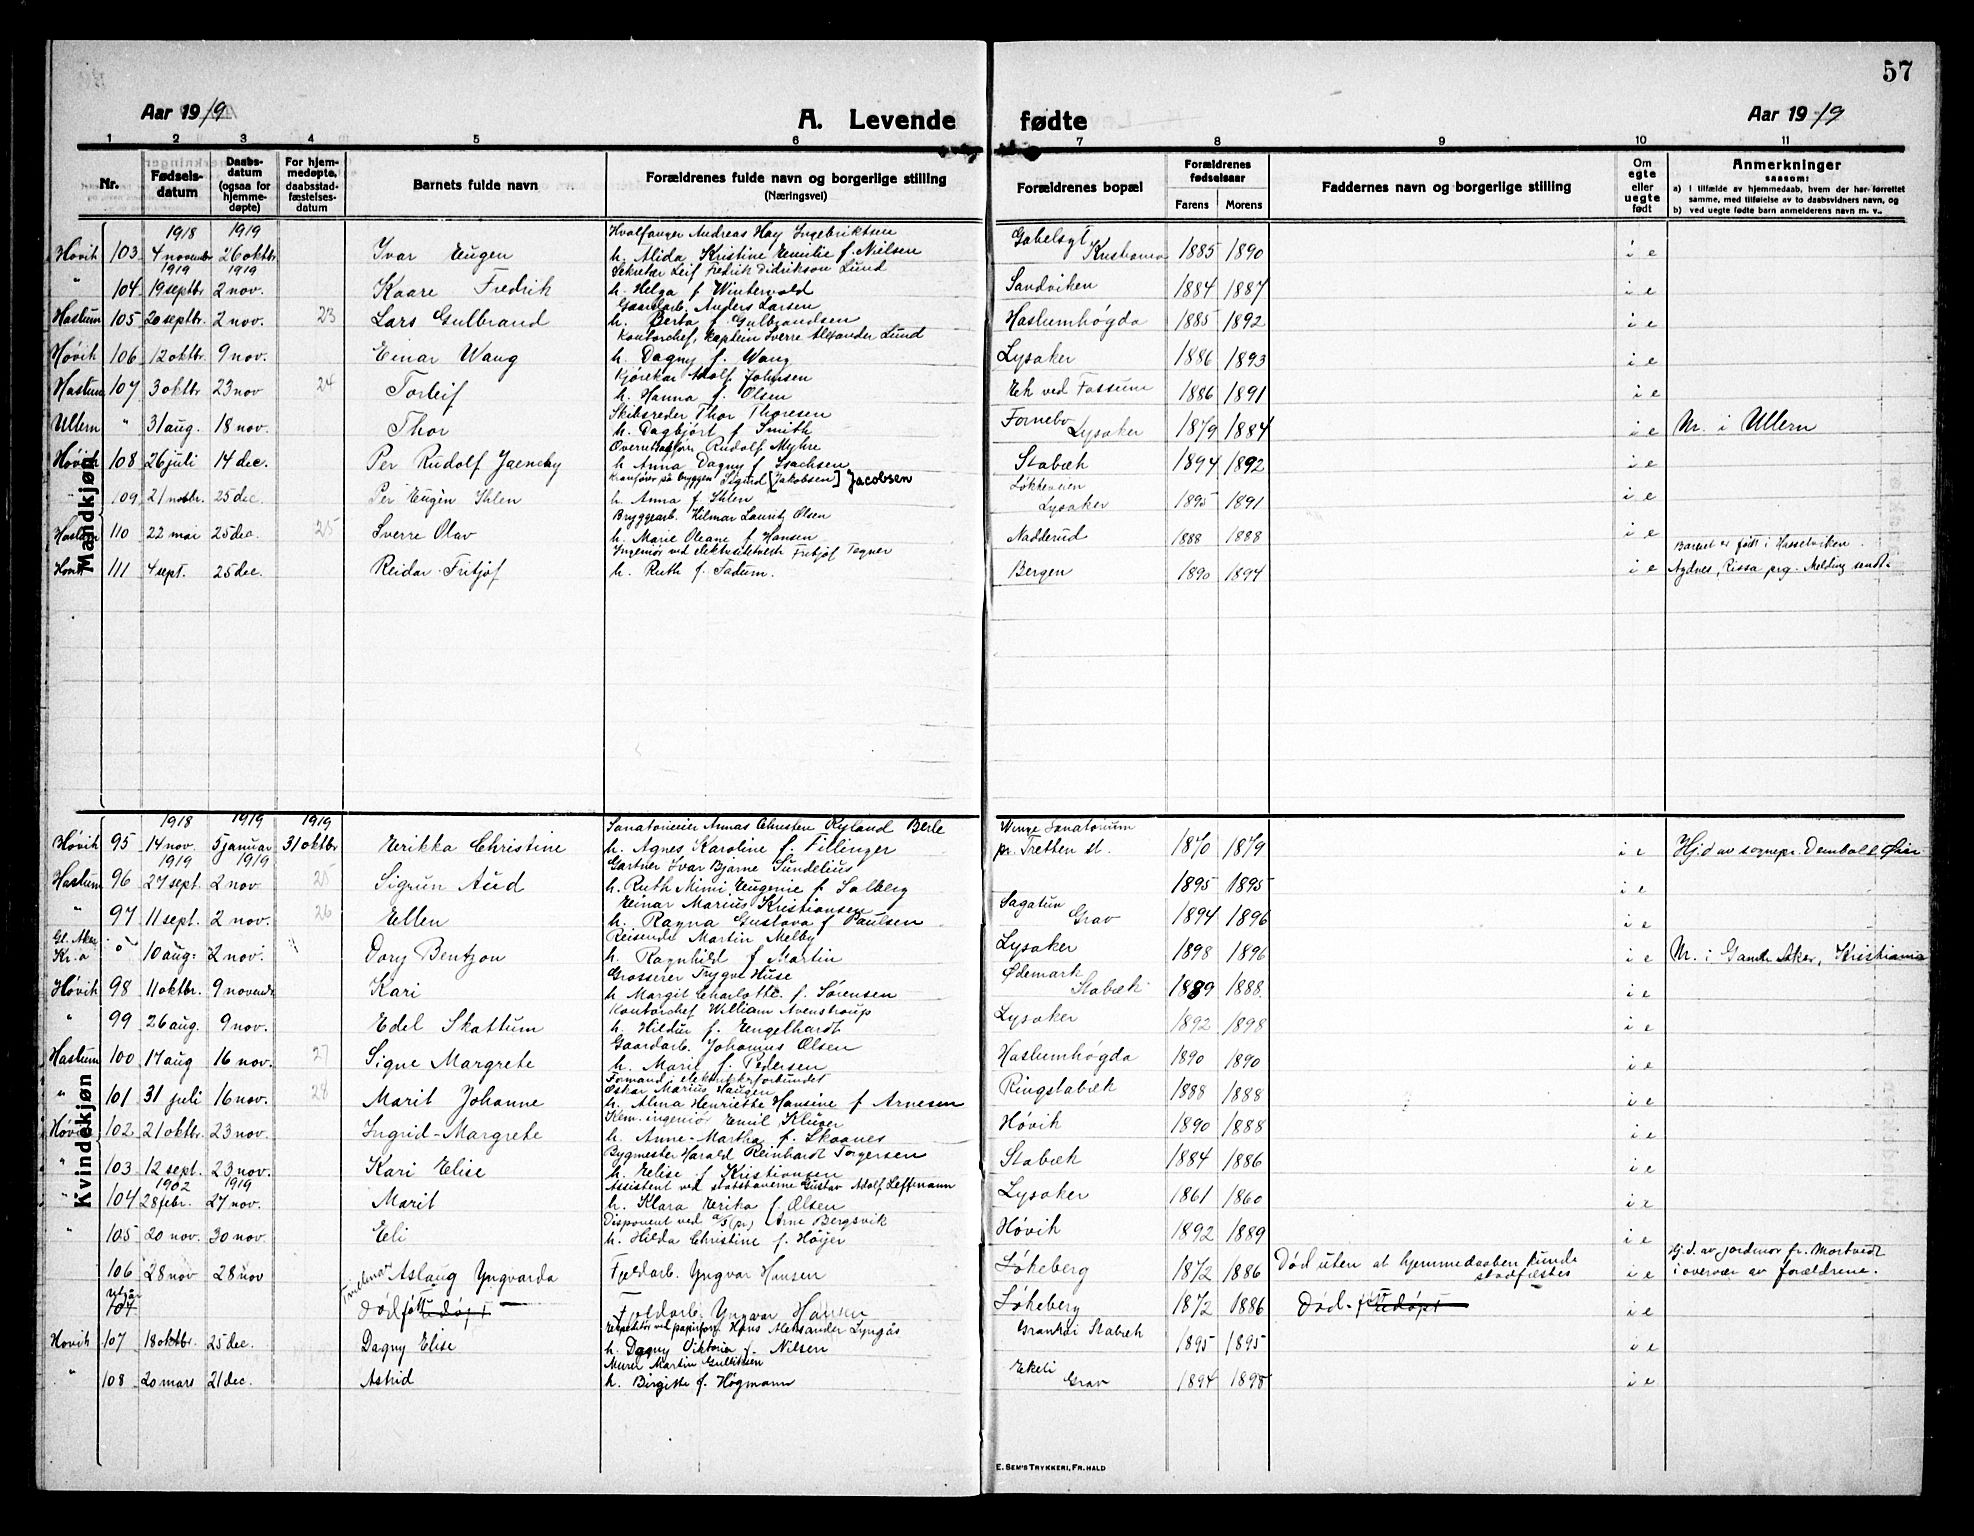 57
Aar 1919 A. Levende fødte Aar 1919
1 2 3 4 5 6 7 8 9 10 11
Nr. Fødsels-datum Daabs-datum (ogsaa for hjemme-døpte) For hjem-medøpte, daabsstad-fæstelses-datum Barnets fulde navn Forældrenes fulde navn og borgerlige stilling (Næringsvei) Forældrenes bopæl Forældrenes fødselsaar Farens Morens Faddernes navn og borgerlige stilling Om egte eller uegte født Anmerkninger
saasom:
a) i tilfælde av hjemmedaab, hvem der har forrettet
samme, med tilføielse av to daabsvidners navn, og
b) ved uegte fødte barn anmelderens navn m. v..
Mandkjøn
1918 1919 Hvalfanger Andreas Hay Ingebriktsen
Høvik 103 4 novembr 26 oktbr Ivar Eugen h. Alida Kristine Emilie f. Nielsen Gabelsgt Kristiania 1885 1890 i e
1919 1919 Sekretær Leif Fredrik Didrikson Lund
" 104 19 septbr 2 nov. Kaare Fredrik h. Helga f Winterwold Sandviken 1884 1887 i e
Gaardarb. Anders Larsen
Haslum 105 20 septbr. 2 nov. 23 Lars Gulbrand h. Berta f Gulbrandsen Haslumhøgda 1885 1892 i e
Kontorchef, kaptein Sverre Alexander Lund
Høvik 106 12 oktbr. 9 nov. Einar Wang h. Dagny f. Wang Lysaker 1886 1893 i e
Kjørekar Adolf Johnsen
Haslum 107 3 oktbr 23 nov 24 Torleif h. Hanna f. Olsen Ek ved Fossum 1886 1891 i e
Skibsreder Thor Thoresen
Ullern " 31 aug. 18 nov. Thor h. Dagbjørt f. Smith Fornebo Lysaker 1879 1884 i e Nr. i Ullern
Overretssakfører Rudolf Myhre
Høvik 108 26 juli 14 dec. Per Rudolf h Anna Dagny f Isachsen Stabæk 1894 1892 i e
Kranfører på bryggen Sigurd [Jakobsen] Jacobsen
" 109 21 novbr. 25 dec. Per Eugèn Ihlen h. Anna f Ihlen Lysaker 1895 1891 i e
Bryggearb. Hilmar Lauritz Olsen
Haslum 110 22 mai 25 dec. 25 Sverre Olav h. Marie Oleane f Hansen Nadderud 1888 1888 i e
Ingeniør ved elektricitetsverk Fritjof Tegner Barnet er født i Hasselviken
Høvik 111 4 sept. 25 dec. Reidar Fritjof h. Ruth f. Tadum. Bergen 1890 1894 i e Agdnes, Rissa prg. Melding sendt.
Kvindekjøn
1918 1919 1919 Christen Ryland Berle
Høvik 95 14 nov. 5 januar 31 oktbr Erikka Christine h. Agnes Karoline f. Fillinger Winge Sanatorium pr. Tretten st. 1870 1879 i e Hj.d av sognepr. Dembolt Øier
1919 1919 Gartner Ivar Bjarne Sundelius
Haslum 96 27 sept. 2 nov 25 Sigrun Aud h. Ruth Mimi Eugenie f. Solberg 1895 1895 i e
Einar Marius Kristiansen
" 97 11 sept. 2 nov. 26 Ellen h. Ragna Gustava f Paulsen Sagatun Grav 1894 1896 i e
Reisende Martin Melby
Gl. Aker Kr.a " 10 aug. 2 nov. Dory Bentzon h. Ragnhild f Martin Lysaker 1898 1896 i e Nr. i Gamle Aker, Kristiania
Grosserer Trygve Huse
Høvik 98 11 oktbr. 9 novembr Kari h. Margit Charlotte f. Sørensen Ødemark Stabæk 1889 1888. i e
Kontorchef William Avenstroup
" 99 26 aug. 9 nov. Edel Skattum h. Hildur f. Engelhardt Lysaker 1892 1898 i e
Gaardarb. Johannes Olsen
Haslum 100 17 aug 16 nov. 27 Signe Margrete h. Marie f. Pedersen Haslumhøgda 1890 1890 i e
Formand i elektrikerforbundet
Oskar Marius Haugen
" 101 31 juli 16 nov. 28 Marit Johanne h. Alma Henriette Hansine f Arnesen Ringstabæk 1888 1888 i e
Kem. ingeniør Emil Klüver
Høvik 102 21 oktbr. 23 nov. Ingrid-Margrete h. Anne-Martha f. Skaanes Høvik 1890 1888 i e
Bygmester Harald Reinhardt Torgersen
" 103 12 sept. 23 nov. Kari Elise h. Elise f Kristiansen Stabæk 1884 1886 i e
1902 1919 Assistent ved statsbanerne Gustav Adolf Leffmann
" 104 28 febr. 27 nov. Marit h. Klara Erika f Olsen Lysaker 1861 1860 i e
Disponent ved a/s Arne Bergsvik
" 105 20 nov. 30 nov. Eli h. Hilda Christine f. Høijer Høvik 1892 1889 i e
106 28 nov 28 nov Aslaug Yngvarda Fjeldarb. Yngvar Hansen Løkeberg 1872 1886 Død uten at hjemmedaaben kunde stadfæstes i e Hj.d. av jordmor fr. Mortvedt i overvær av forældrene.
utgår 107 Dødfødt udøpt Fjeldarb. Yngvar Hansen Løkeberg 1872 1886 Død-født udøpt i e
Ekspeditør ved papirforr. Hans Aleksander Lyngås
Høvik 107 18 oktbr. 25 dec. Dagny Elise h. Dagny Viktoria f. Nilsen Stabæk 1895 1895 i e
Murer Martin Gullitksen
" 108 20 mars 21 dec. Astrid h. Birgitte f. Høgmann Ekeli Grav 1894 1895 i e
E. SEM'S TRYKKERI, FR. HALD